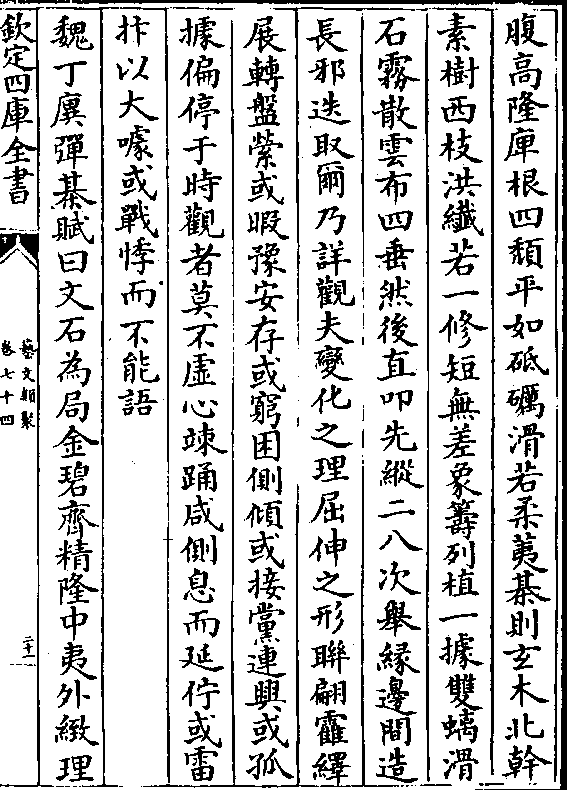 腹高隆庳根四頽平如砥礪滑若柔荑棊則玄木北幹
素樹西枝洪纖若一修短無差象籌列植一據雙螭滑
石霧散雲布四垂然後直叩先縱二八次舉緣邊間造
長邪迭取爾乃詳觀夫變化之理屈伸之形聨翩霍繹
展轉盤縈或暇豫安存或窮困側傾或接黨連輿或孤
據偏停于時觀者莫不虛心竦踊咸側息而延佇或雷
抃以大噱或戰悸而不能語
魏丁廙彈棊賦曰文石為局金碧齊精隆中夷外緻理
欽定四庫全書
藝文類聚
卷七十四
二十一